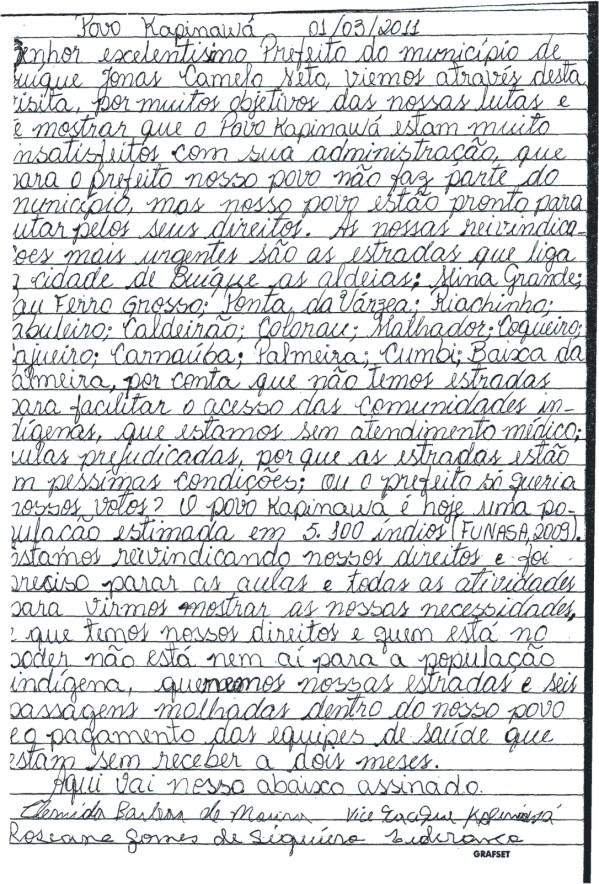 Povo Kapinawá 01/03/2011
enhor excelentisimo Prefeito do município de
uíque Jonas Camelo Neto, viemos através desta
isita, por muitos objetivos das nossas lutas e
é mostrar que o Povo Kapinawá estam muito
nsatisfeitos com sua administração, que
ara o prefeito nosso povo não faz parte do
município, mas nosso povo estão pronto para
utar pelos seus direitos. As nossas reivindica-
ões mais urgentes são as estradas que liga
a cidade de Buíque as aldeias: Mina Grande;
au Ferro Grosso; Ponta da Várzea; Riachinho;
abuleiro; Caldeirão; Colorau; Malhador; Coqueiro;
ajueiro; Carnaúba; Palmeira; Cumbi; Baixa da
almeira, por conta que não temos estradas
ara facilitar o acesso das comunidades in-
dígenas, que estamos sem atendimento médico;
aulas prejudicadas, por que as estradas estão
m pessímas condições; ou o prefeito só queria
nossos votos? O povo Kapinawá é hoje uma po-
ulação estimada em 5.100 índios (FUNASA, 2009).
stamos reivindicando nossos direitos e foi
reciso parar as aulas e todas as atividades
ara virmos mostrar as nossas necessidades,
e que temos nossos direitos e quem está no
oder não está nem aí para a população
indígena, queremos nossas estradas e seis
passagens molhadas dentro do nosso povo
e o pagamento das equipes de saúde que
estam sem receber a dois meses.
Aqui vai nosso abaixo assinado.
Barbosa de Moura Vice Cacique Kapinawá
Roseane Gomes de Siqueira Liderança
GRAFSET